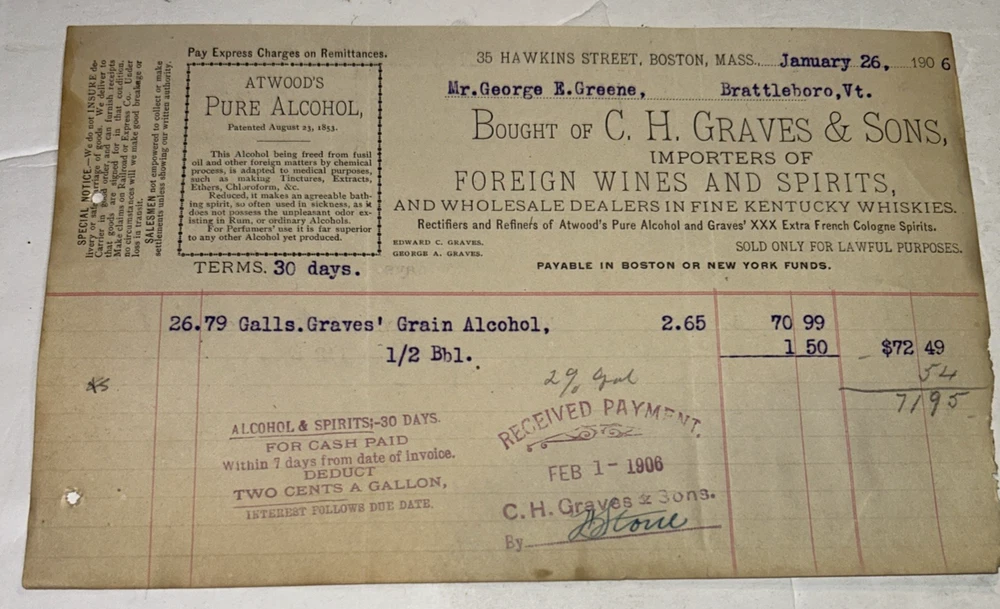 SPECIAL NOTICE.—We do not INSURE de-
livery or safe carriage of goods. We deliver to
Carrier in good order, and can furnish receipts
that goods are signed for in that condition.
Make claims on Railroad or Express Co. Under
no circumstances will we make good breakage or
loss in transit.
SALESMEN not empowered to collect or make
settlements unless showing our written authority.
Pay Express Charges on Remittances.
ATWOOD'S
PURE ALCOHOL,
Patented August 23, 1853.
This Alcohol being freed from fusil
oil and other foreign matters by chemical
process, is adapted to medical purposes,
such as making Tinctures, Extracts,
Ethers, Chloroform, &c.
Reduced, it makes an agreeable bath-
ing spirit, so often used in sickness, as it
does not possess the unpleasant odor ex-
isting in Rum, or ordinary Alcohols.
For Perfumers' use it is far superior
to any other Alcohol yet produced.
TERMS. 30 days.
35 HAWKINS STREET, BOSTON, MASS. January 26, 1906
Mr.George E.Greene, Brattleboro,Vt.
BOUGHT OF C. H. GRAVES & SONS,
IMPORTERS OF
FOREIGN WINES AND SPIRITS,
AND WHOLESALE DEALERS IN FINE KENTUCKY WHISKIES.
Rectifiers and Refiners of Atwood's Pure Alcohol and Graves' XXX Extra French Cologne Spirits.
EDWARD C. GRAVES.
GEORGE A. GRAVES.
SOLD ONLY FOR LAWFUL PURPOSES.
PAYABLE IN BOSTON OR NEW YORK FUNDS.
26.79 Galls.Graves' Grain Alcohol, 2.65 70 99
1/2 Bbl. 1 50 $72 49
2% gal 54
71 95
ALCOHOL & SPIRITS;-30 DAYS.
FOR CASH PAID
Within 7 days from date of invoice.
DEDUCT
TWO CENTS A GALLON,
INTEREST FOLLOWS DUE DATE.
RECEIVED PAYMENT.
FEB 1-1906
C.H.Graves & Sons.
By Stone